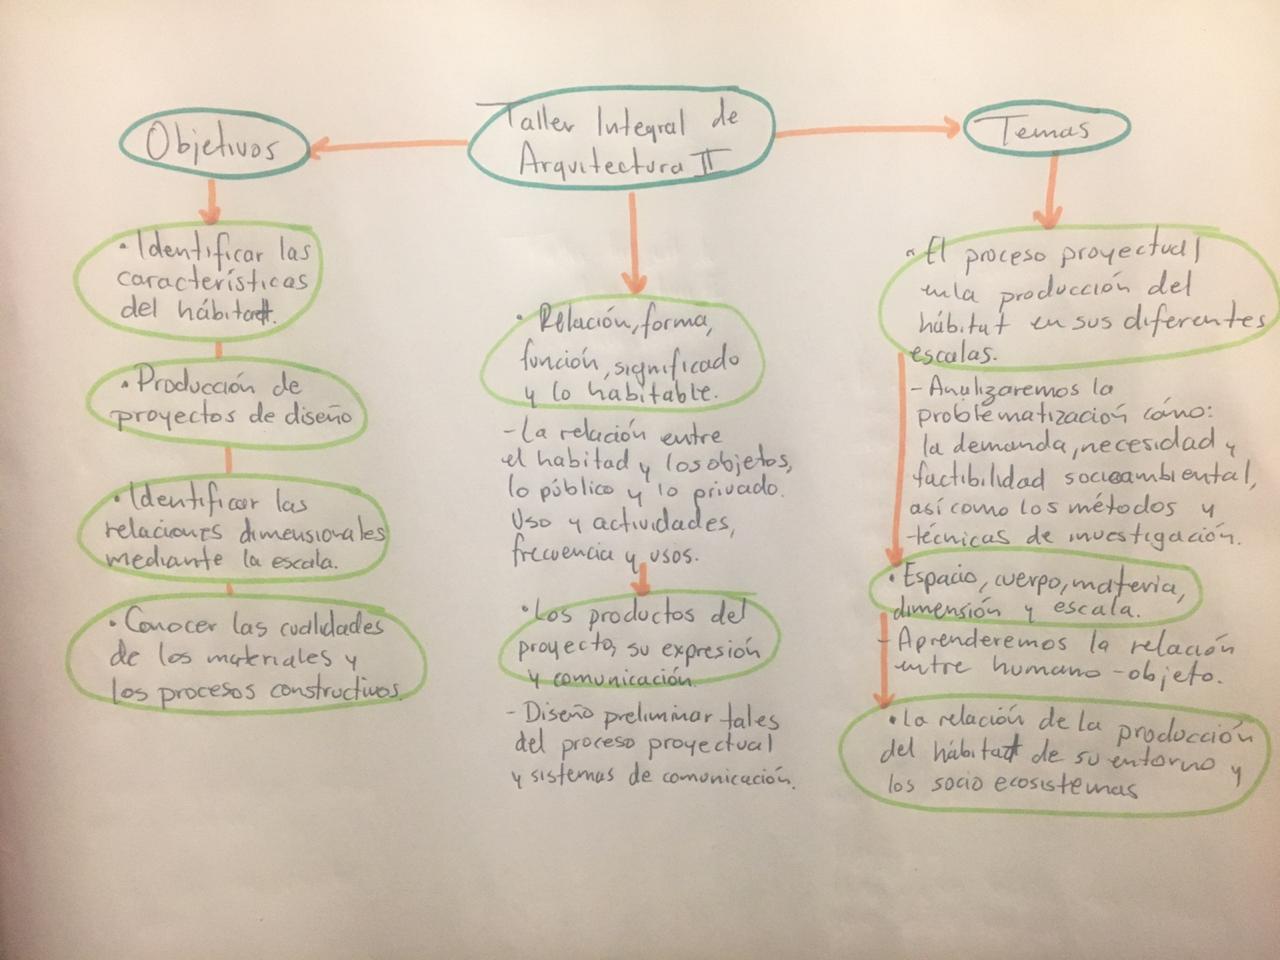 Objetivos
• Identificar las
características
del hábitat.
• Producción de
proyectos de diseño
• Identificar las
relaciones dimensionales
mediante la escala.
• Conocer las cualidades
de los materiales y
los procesos constructivos.
Taller Integral de
Arquitectura II
• Relación, forma,
función, significado
y lo habitable.
- La relación entre
el habitad y los objetos,
lo público y lo privado.
Uso y actividades,
frecuencia y usos.
• Los productos del
proyecto, su expresión
y comunicación.
- Diseño preliminar tales
del proceso proyectual
y sistemas de comunicación.
Temas
• El proceso proyectual
en la producción del
hábitat en sus diferentes
escalas.
- Analizaremos la
problematización cómo:
la demanda, necesidad y
factibilidad socioambiental,
así como los métodos y
técnicas de investigación.
• Espacio, cuerpo, materia,
dimensión y escala.
- Aprenderemos la relación
entre humano - objeto.
• La relación de la producción
del hábitat de su entorno y
los socio ecosistemas